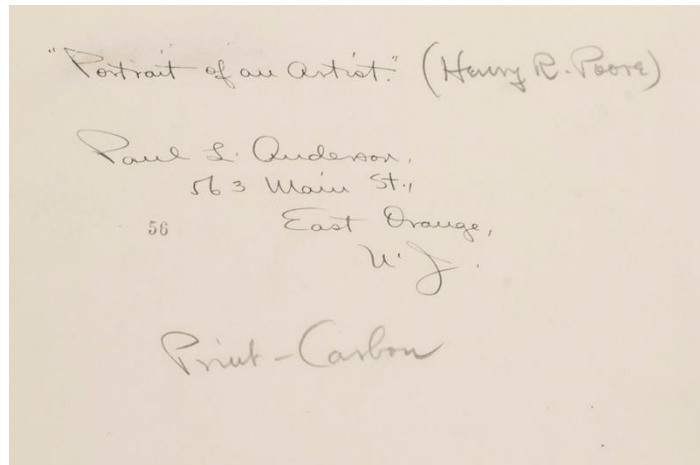 "Portrait of an Artist." (Henry R. Poore)
Paul L. Anderson,
563 Main St.,
East Orange,
56
N.J.
Print - Carbon